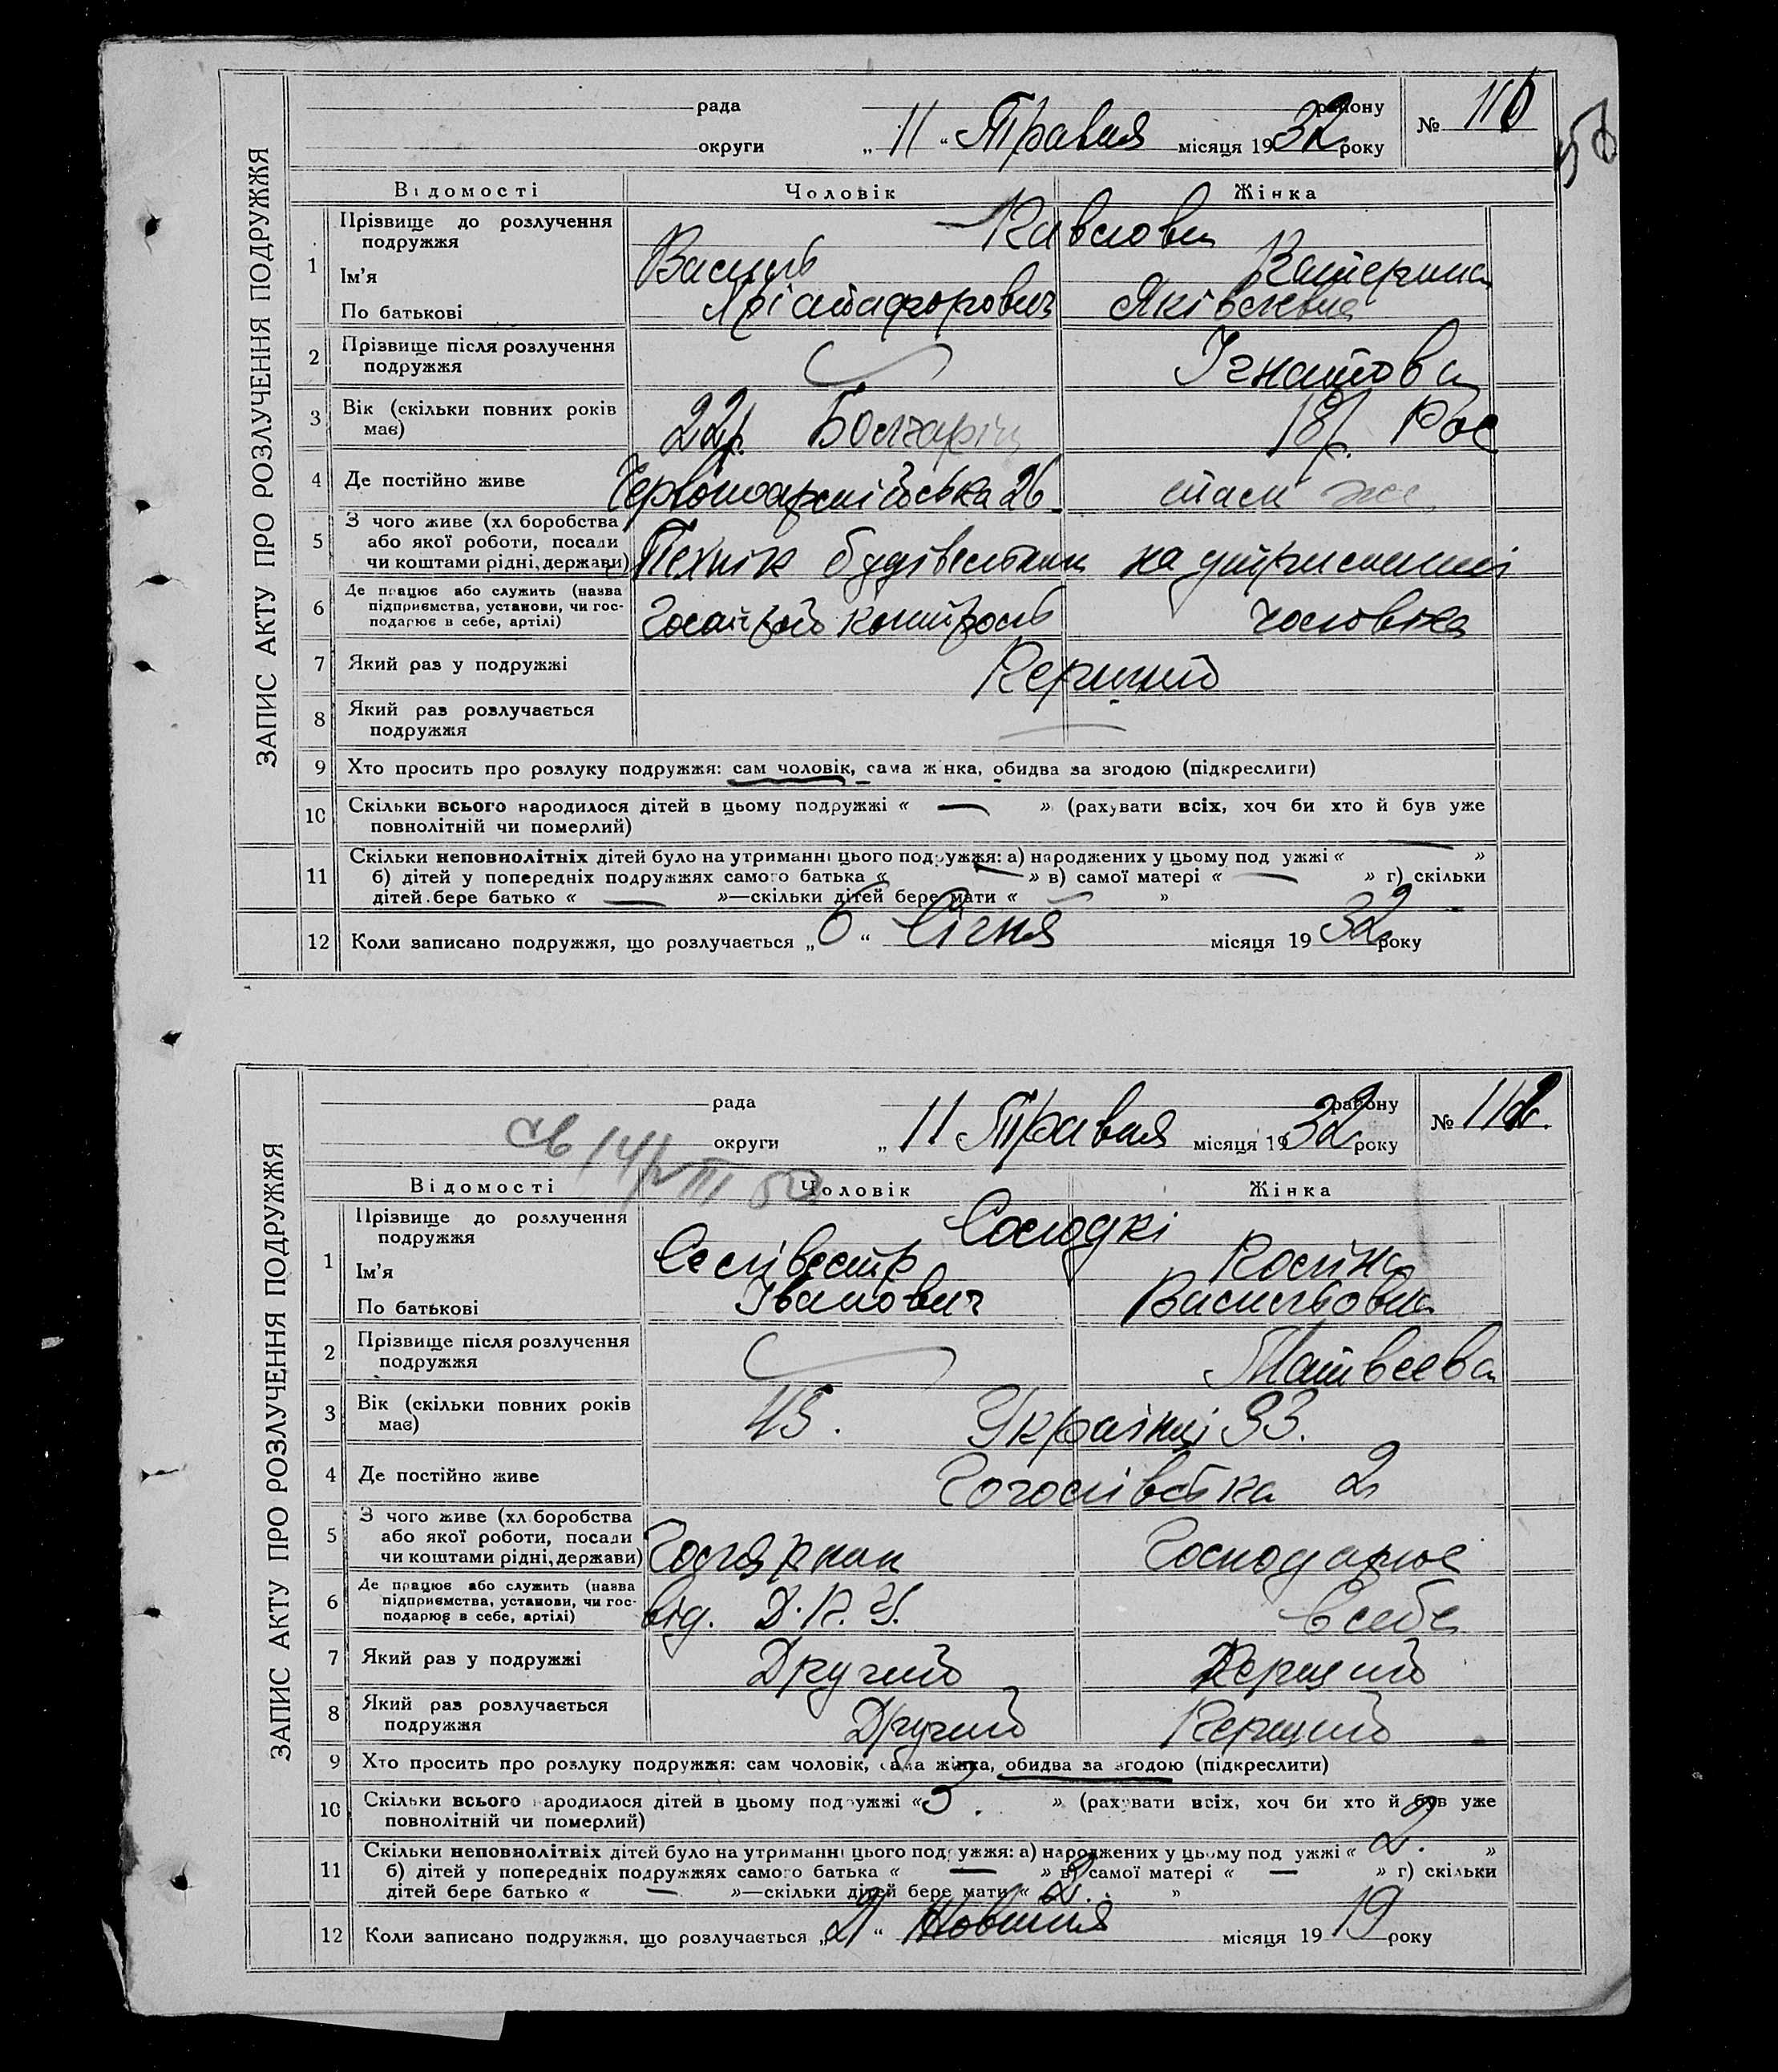 ЗАПИС АКТУ ПРО РОЗЛУЧЕННЯ ПОДРУЖЖЯ
рада району № 110
округи „ 11 “ Травня місяця 1932 року
56
Відомості Чоловік Жінка
1 Прізвище до розлучення подружжя Павлови
Ім’я Василь Катерина
По батькові Яківлевна
2 Прізвище після розлучення подружжя Ігнатова
3 Вік (скільки повних років має) 22р. Болгарін 18р. Рос
4 Де постійно живе Червоноармійська 26 там же
5 З чого живе (хл боробства або якої роботи, посади чи коштами рідні, держави) Технік будівельник на утриманні
6 Де працює або служить (назва підприємства, установи, чи господарює в себе, артілі) контроль чоловіка
7 Який раз у подружжі Перший
8 Який раз розлучається подружжя —
9 Хто просить про розлуку подружжя: сам чоловік, сама жінка, обидва за згодою (підкреслити)
10 Скільки всього народилося дітей в цьому подружжі « — » (рахувати всіх, хоч би хто й був уже
повнолітній чи померлий)
11 Скільки неповнолітніх дітей було на утриманні цього подружжя: а) народжених у цьому под ужжі « — »
б) дітей у попередніх подружжях самого батька « — » в) самої матері « — » г) скільки
дітей бере батько « — »—скільки дітей бере мати « — »
12 Коли записано подружжя, що розлучається „ 6 “ Січня місяця 1932 року
ЗАПИС АКТУ ПРО РОЗЛУЧЕННЯ ПОДРУЖЖЯ
рада району № 112.
округи „ 11 Травня місяця 1932 року
Відомості Чоловік Жінка
1 Прізвище до розлучення подружжя Солодкі
Ім’я Селівестр Поліна
По батькові Іванович Васильовна
2 Прізвище після розлучення подружжя Матвеева
3 Вік (скільки повних років має) 45. Українці 33.
4 Де постійно живе Гоголівська 2
5 З чого живе (хл боробства або якої роботи, посади чи коштами рідні, держави) Господарює
6 Де працює або служить (назва підприємства, установи, чи господарює в себе, артілі) від. Д.П.У. в себе
7 Який раз у подружжі Другий Перший
8 Який раз розлучається подружжя Другий Перший
9 Хто просить про розлуку подружжя: сам чоловік, сама жінка, обидва за згодою (підкреслити)
10 Скільки всього народилося дітей в цьому подружжі « 3. » (рахувати всіх, хоч би хто й був уже
повнолітній чи померлий)
11 Скільки неповнолітніх дітей було на утриманні цього подружжя: а) народжених у цьому под ужжі « 2. »
б) дітей у попередніх подружжях самого батька « — » в) самої матері « — » г) скільки
дітей бере батько « — »—скільки дітей бере мати « 2. »
12 Коли записано подружжя, що розлучається „ 21 “ Жовтня місяця 1919 року